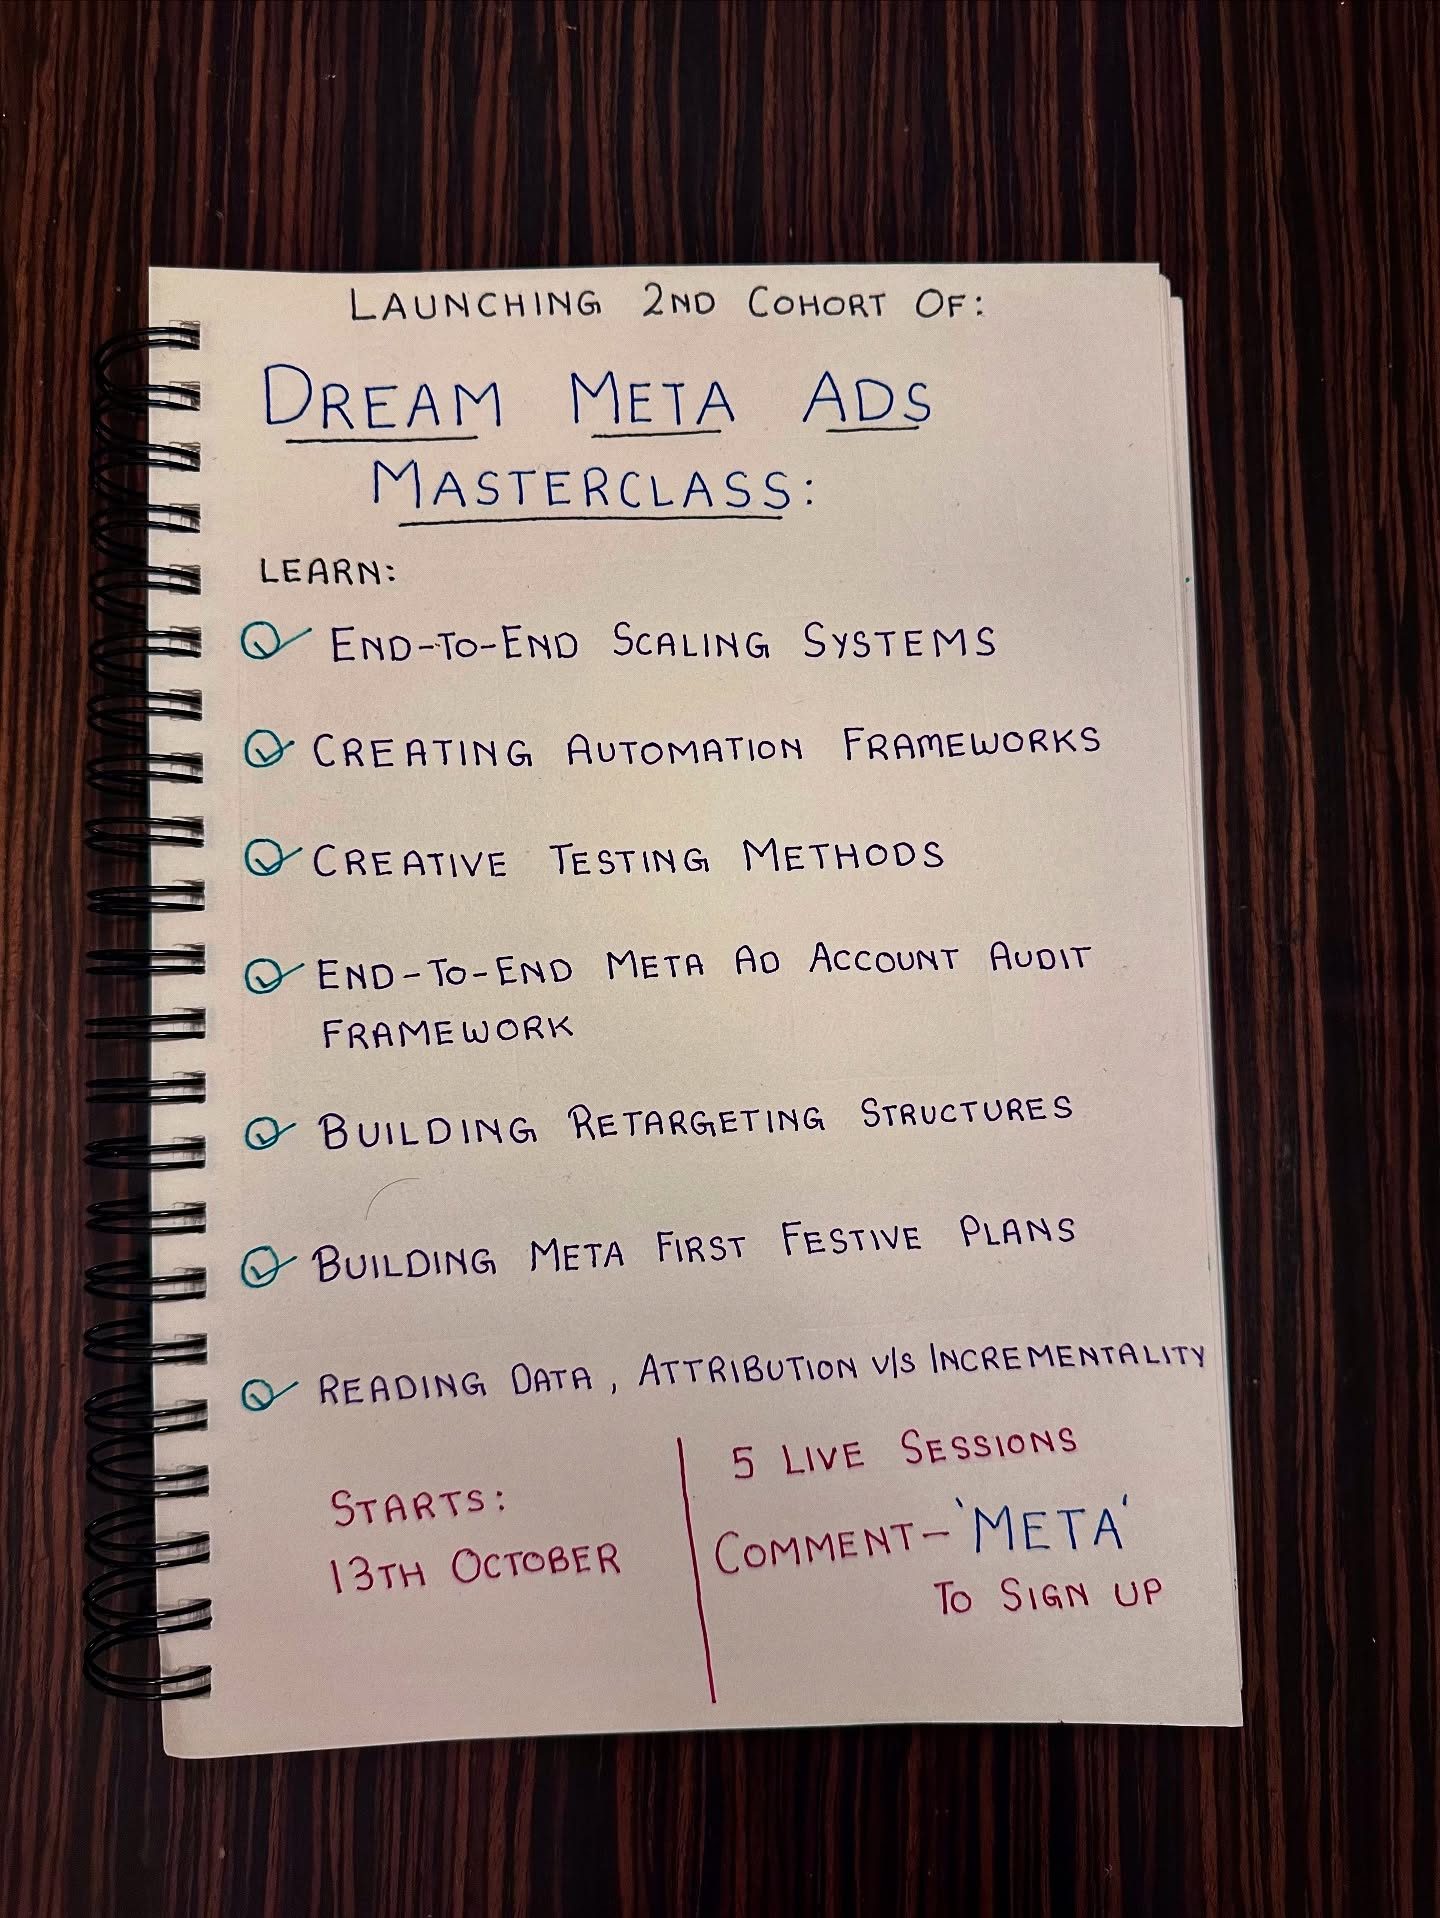 LAUNCHING 2ND COHORT OF:
DREAM META ADS
MASTERCLASS:
LEARN:
END-TO-END SCALING SYSTEMS
CREATING AUTOMATION FRAMEWORKS
CREATIVE TESTING METHODS
END-TO-END META AD ACCOUNT AUDIT
FRAMEWORK
BUILDING RETARGETING STRUCTURES
BUILDING META FIRST FESTIVE PLANS
READING DATA, ATTRIBUTION V/S INCREMENTALITY
STARTS:
13TH OCTOBER
5 LIVE SESSIONS
COMMENT - 'META'
TO SIGN UP